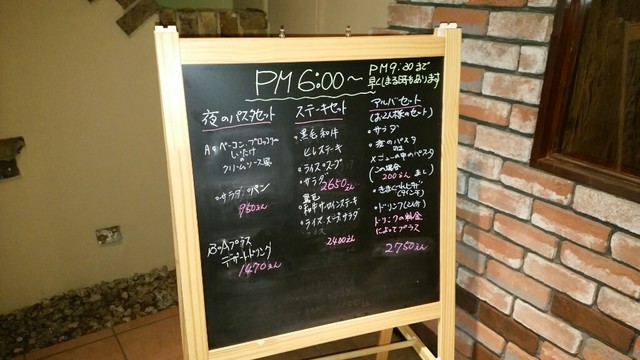 PM 6:00〜
PM9:30まで
早くしまる時もあります
夜のパスタセット
A・ベーコン、ブロッコリー
しいたけの
クリームソース風
・サラダ ・パン
950えん
B・Aプラス
デザート・ドリンク
1470えん
ステーキセット
・黒毛和牛
ヒレステーキ
・ライス・スープ
・サラダ
2650えん
・黒毛
和牛サーロインステーキ
・ライス・スープ・サラダ
2400えん
アルバセット
(お2人様のセット)
・サラダ
・夜のパスタ
又は
メニューの中のパスタ
(この場合
200えん増し)
・きまぐれピザ
・ドリンク(2人分)
ドリンクの料金
によってプラス
2750えん